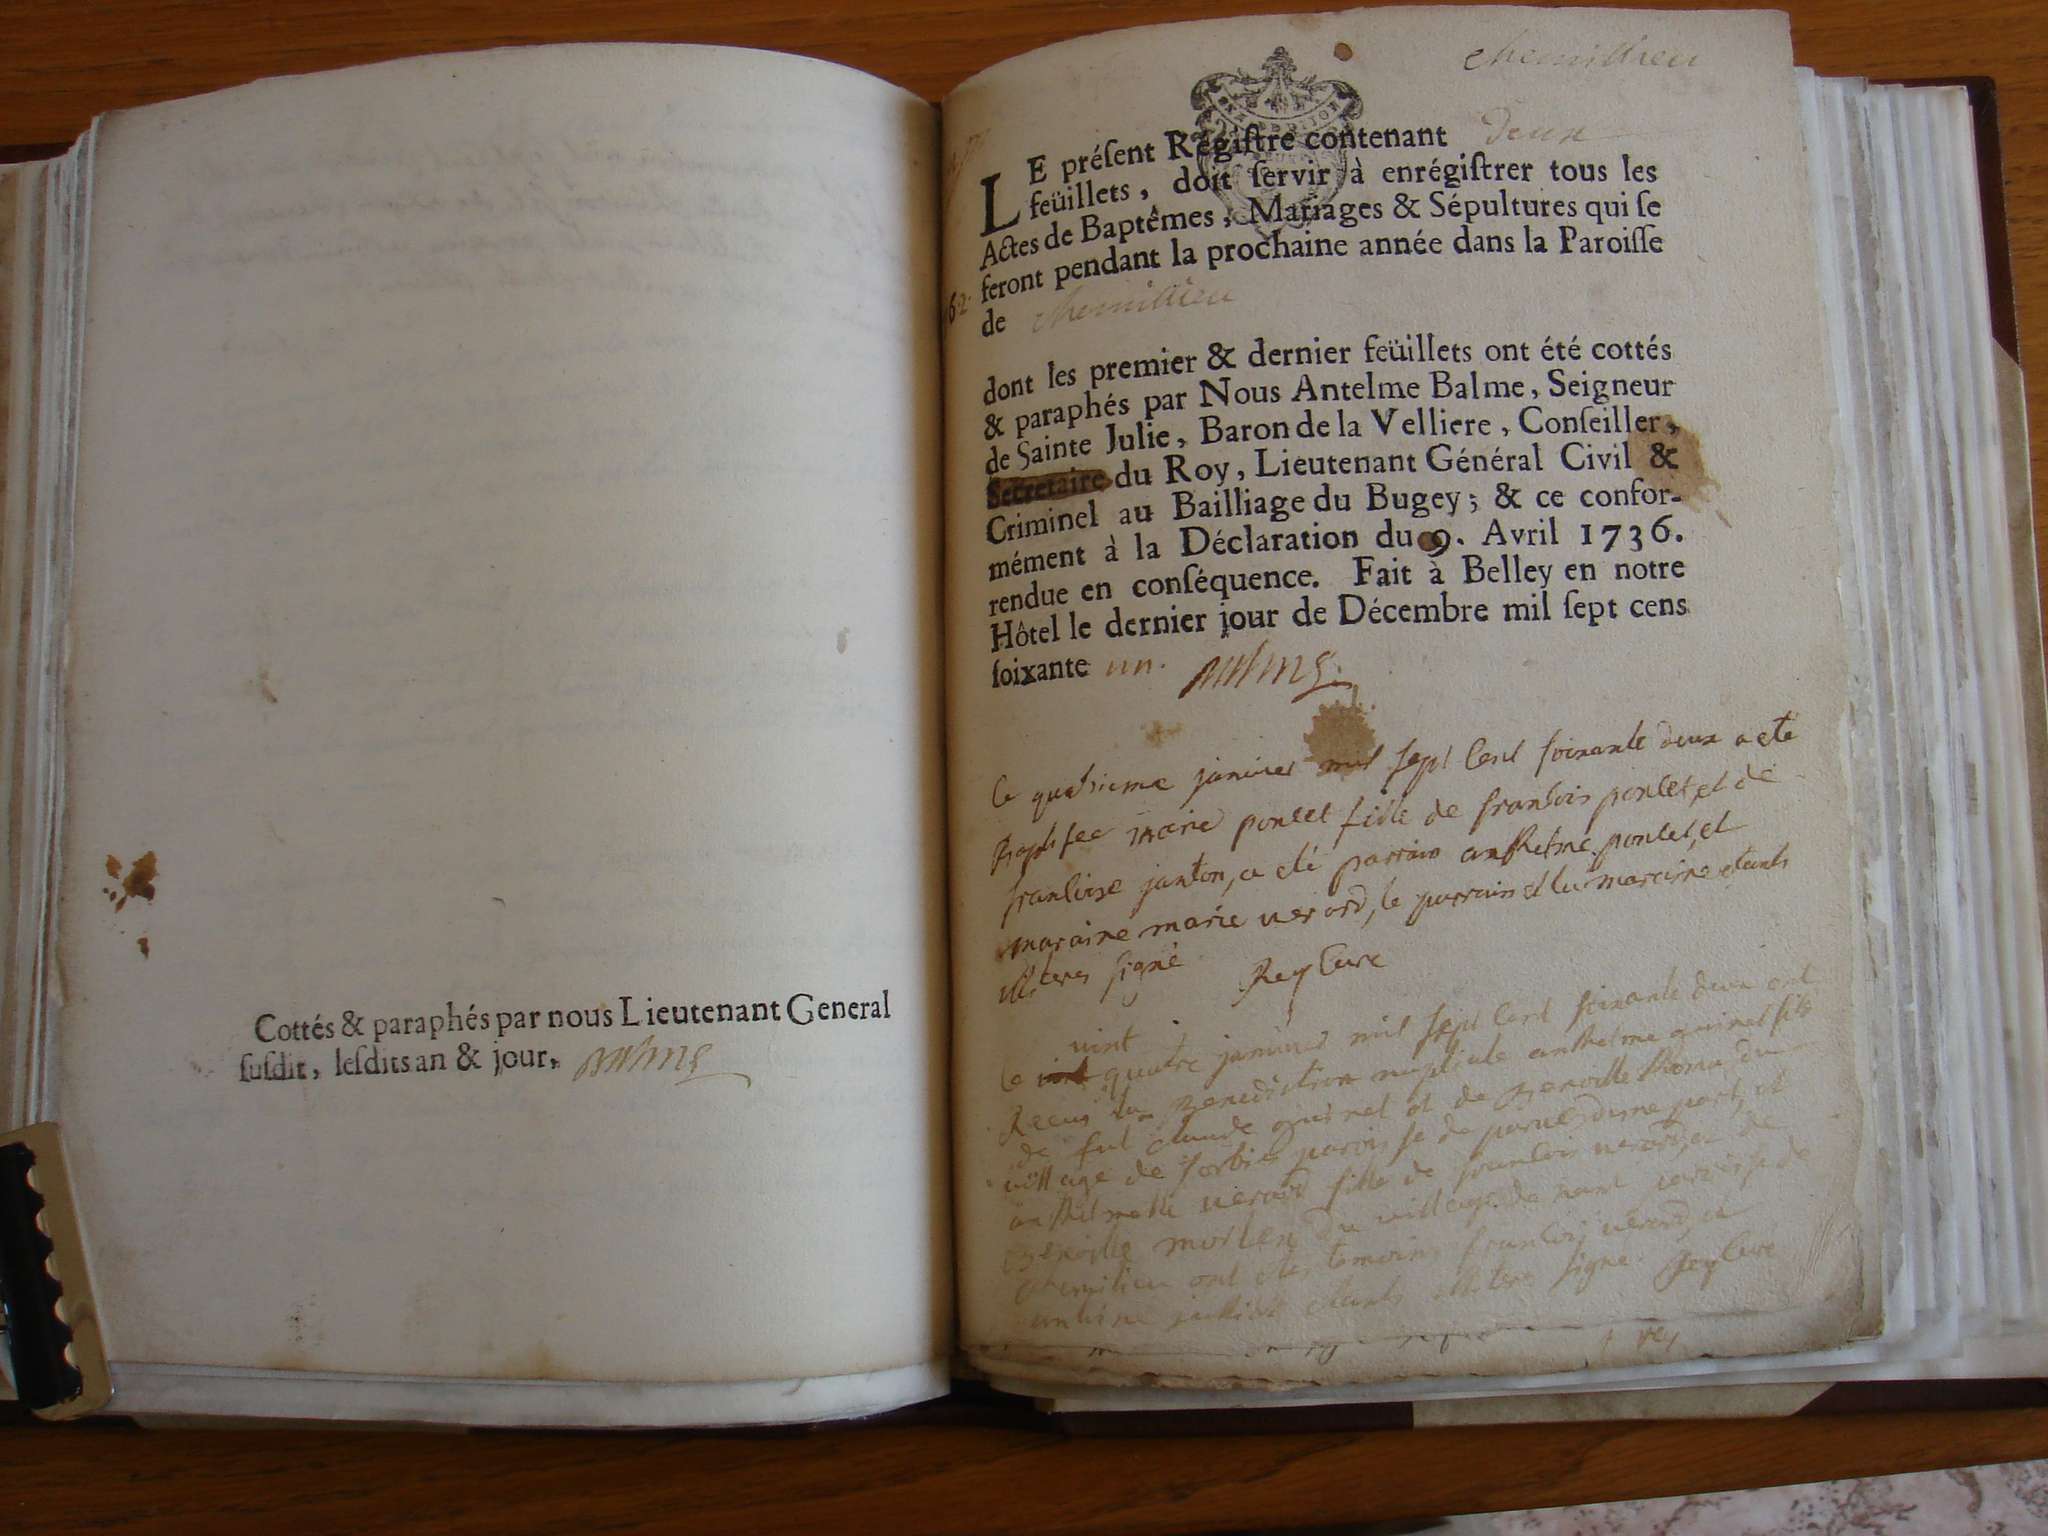 Cottés & paraphés par nous Lieutenant General
ſuſdit, leſdits an & jour,
chemillieu
LE préſent Régiſtre contenant deux
feüillets, doit ſervir à enrégiſtrer tous les
Actes de Baptêmes, Mariages & Sépultures qui ſe
feront pendant la prochaine année dans la Paroiſſe
de chemillieu
dont les premier & dernier feüillets ont été cottés
& paraphés par Nous Antelme Balme, Seigneur
de Sainte Julie, Baron de la Velliere, Conſeiller,
Secretaire du Roy, Lieutenant Général Civil &
Criminel au Bailliage du Bugey; & ce confor-
mément à la Déclaration du 9. Avril 1736.
rendue en conſéquence. Fait à Belley en notre
Hôtel le dernier jour de Décembre mil ſept cens
ſoixante un.
le quatrieme janvier mil sept cent soixante deux a ete
Baptisee marie poncet fille de francois poncet, et de
francoise janton, a eté parrain anthelme poncet, et
maraine marie verord, le parrain et la maraine etants
illiteres signé Rey cure
vint
le quatre janvier mil sept cent soixante deux ont
Receu la Benediction nuptiale anthelme quinet fils
de fut claude quinet et de Benoitte thoma du
village de sorbier paroisse de parves dune part, et
anthelmette verord fille de francois verord, et de
Benoitte du village de nant paroisse de
chemilieu ont ete temoins francois verord, et
antoine etants illiteres signe Rey cure